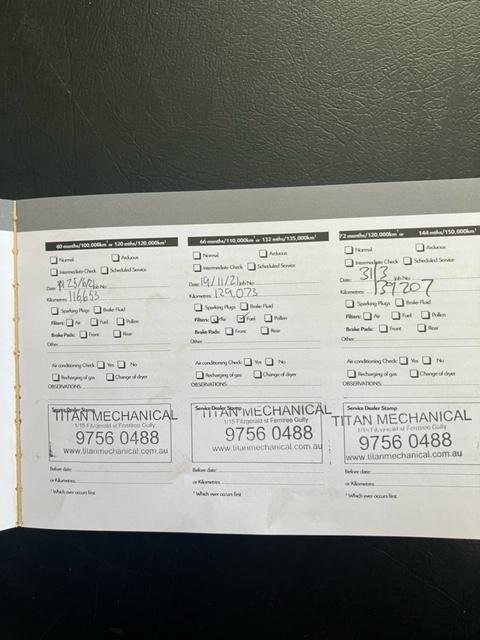 60 months/100,000km¹ or 120 mths/120,000km¹
Normal Arduous
Intermediate Check Scheduled Service
Date: 25/6/21 Job No:
Kilometres: 116,655
Sparking Plugs Brake Fluid
Filters: Air Fuel Pollen
Brake Pads: Front Rear
Other
Air conditioning Check: Yes No
Recharging of gas Change of dryer
OBSERVATIONS:
Service Dealer Stamp
TITAN MECHANICAL
1/15 Fitzgerald st Ferntree Gully
9756 0488
www.titanmechanical.com.au
Before date:
or Kilometres
¹ Which ever occurs first
66 months/110,000km¹ or 132 mths/135,000km¹
Normal Arduous
Intermediate Check Scheduled Service
Date: 19/11/21 Job No:
Kilometres: 129,073
Sparking Plugs Brake Fluid
Filters: Air Fuel Pollen
Brake Pads: Front Rear
Other
Air conditioning Check: Yes No
Recharging of gas Change of dryer
OBSERVATIONS:
Service Dealer Stamp
TITAN MECHANICAL
1/15 Fitzgerald st Ferntree Gully
9756 0488
www.titanmechanical.com.au
Before date:
or Kilometres
¹ Which ever occurs first
72 months/120,000km¹ or 144 mths/150,000km
Normal Arduous
Intermediate Check Scheduled Service
Date: 31/3 Job No:
Kilometres: 139207
Sparking Plugs Brake Fluid
Filters: Air Fuel Pollen
Brake Pads: Front Rear
Other
Air conditioning Check: Yes No
Recharging of gas Change of dryer
OBSERVATIONS:
Service Dealer Stamp
TITAN MECHANICAL
1/15 Fitzgerald st Ferntree Gully
9756 0488
www.titanmechanical.com.au
Before date:
or Kilometres
¹ Which ever occurs first